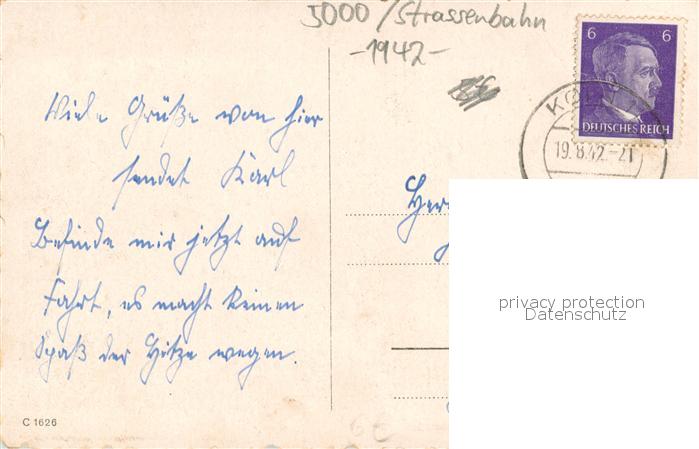 5000/Strassenbahn
-1942-
6 6
DEUTSCHES REICH
KÖLN
19.8.42.-21
Viele Grüße von hier
sendet Karl
Befinde mir jetzt auf
Fahrt, es macht keinen
Spaß der Hitze wegen.
Herr
privacy protection
Datenschutz
C 1626
6€